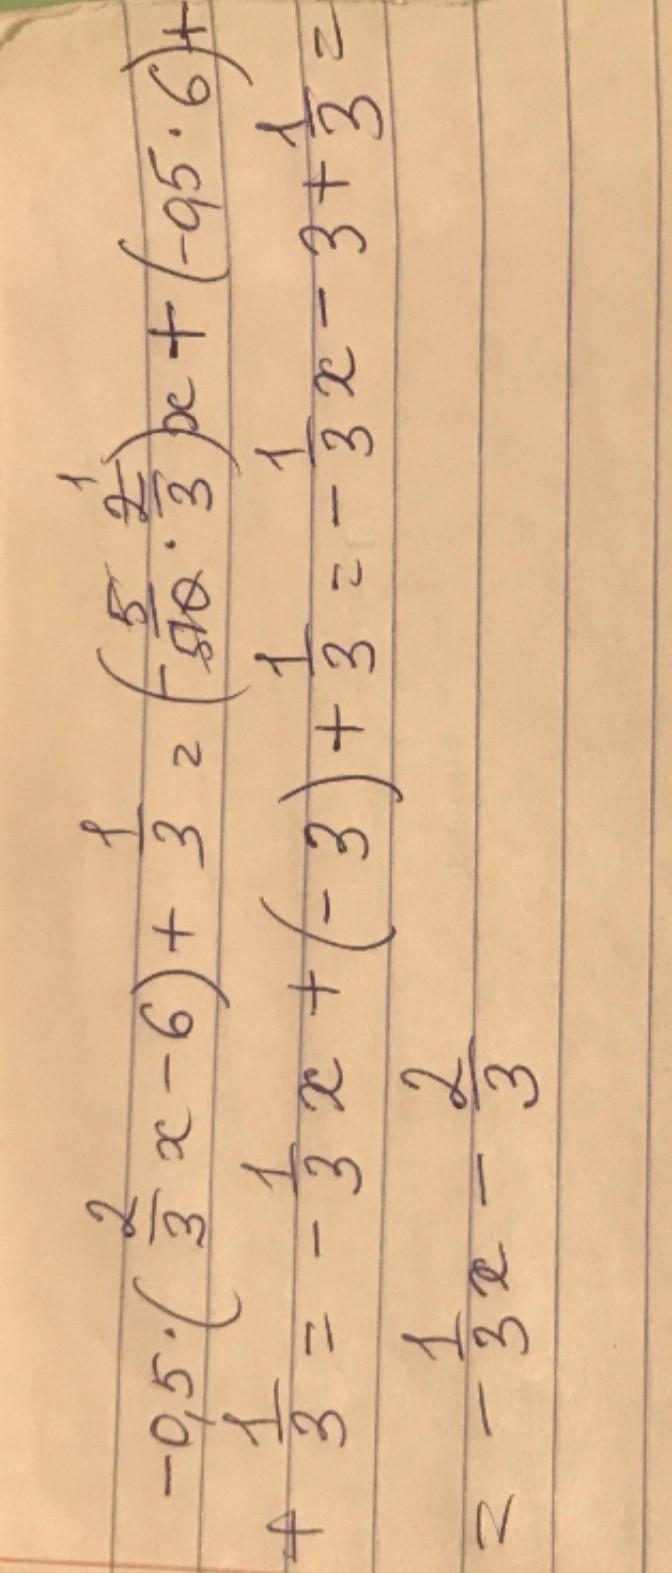 -0,5·(2/3 x-6)+1/3=(-5/10·2/3)x+(-0,5·6)+
+1/3=-1/3 x+(-3)+1/3=-1/3 x-3+1/3=
=-1/3 x-2/3